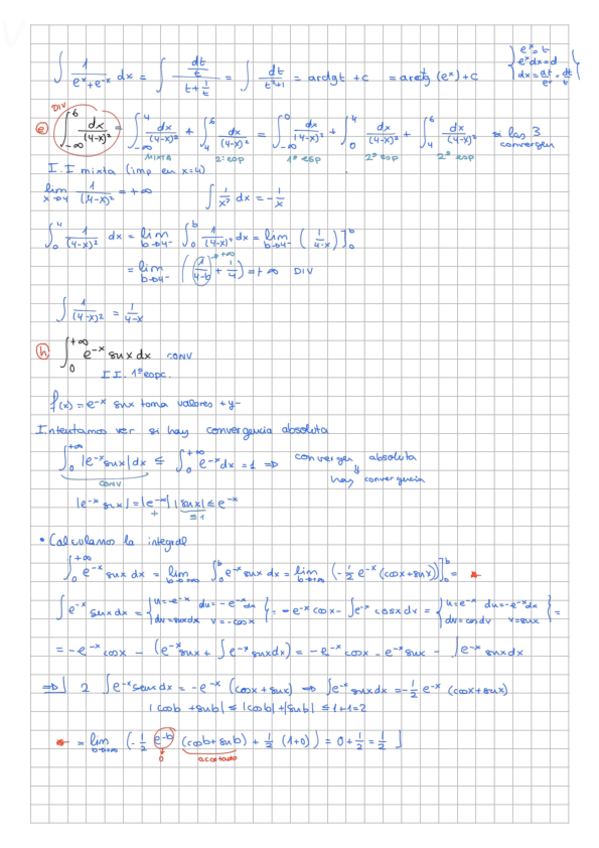 ∫ 1/(eˣ+e⁻ˣ) dx = ∫ (dt/t)/(t+1/t) = ∫ dt/(t²+1) = arctgt + c = arctg (eˣ)+C { eˣ=t
eˣdx=d
dx=dt/eˣ=dt/t }
DIV
e) ∫_{-∞}^{6} dx/(4-x)² = ∫_{-∞}^{4} dx/(4-x)² + ∫_{4}^{6} dx/(4-x)² = ∫_{-∞}^{0} dx/(4-x)² + ∫_{0}^{4} dx/(4-x)² + ∫_{4}^{6} dx/(4-x)² si las 3 convergen
MIXTA 2ª esp 1ª esp 2ª esp 2ª esp
I.I mixta (imp en x=4)
lim_{x→4} 1/(4-x)² = +∞ ∫ 1/x² dx = -1/x
∫_{0}^{4} 1/(4-x)² dx = lim_{b→4⁻} ∫_{0}^{b} 1/(4-x)² dx = lim_{b→4⁻} (1/(4-x)) ]_{0}^{b}
= lim_{b→4⁻} (1/(4-b) + 1/4) = +∞ DIV
→+∞
∫ 1/(4-x)² = 1/(4-x)
h) ∫_{0}^{+∞} e⁻ˣ senx dx CONV
I I. 1ª espc.
f(x) = e⁻ˣ senx toma valores + y -
Intentamos ver si hay convergencia absoluta
∫_{0}^{+∞} |e⁻ˣ senx| dx ≤ ∫_{0}^{+∞} e⁻ˣ dx = 1 ⇒ convergen absoluta y hay convergencia
CONV
|e⁻ˣ senx| = |e⁻ˣ| |senx| ≤ e⁻ˣ
+ ≤1
• Calculamos la integral
∫_{0}^{+∞} e⁻ˣ senx dx = lim_{b→+∞} ∫_{0}^{b} e⁻ˣ senx dx = lim_{b→+∞} (-1/2 e⁻ˣ (cosx+senx)) ]_{0}^{b} = *
∫ e⁻ˣ senx dx = { u=e⁻ˣ du=-e⁻ˣ dx
dv=senxdx v=-cosx } = -e⁻ˣ cosx - ∫ e⁻ˣ cosx dx = { u=e⁻ˣ du=-e⁻ˣ dx
dv=cosdv v=senx } =
= -e⁻ˣ cosx - (e⁻ˣ senx + ∫ e⁻ˣ senxdx) = -e⁻ˣ cosx - e⁻ˣ senx - ∫ e⁻ˣ senxdx
⇒ 2 ∫ e⁻ˣ senx dx = -e⁻ˣ (cosx + senx) ⇒ ∫ e⁻ˣ senx dx = -1/2 e⁻ˣ (cosx + senx)
|cosb + senb| ≤ |cosb| + |senb| ≤ 1+1=2
* = lim_{b→+∞} (-1/2 e⁻ᵇ (cosb + senb) + 1/2 (1+0)) = 0 + 1/2 = 1/2
0 acotado